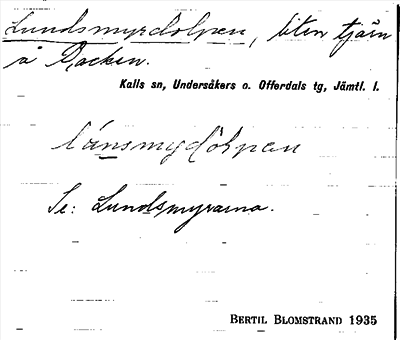 Lundsmyrdolpen, liten tjärn
å Backen.
Kalls sn, Undersåkers o. Offerdals tg, Jämtl. l.
lánsmyḍòlpan
Se: Lundsmyrarna.
BERTIL BLOMSTRAND 1935